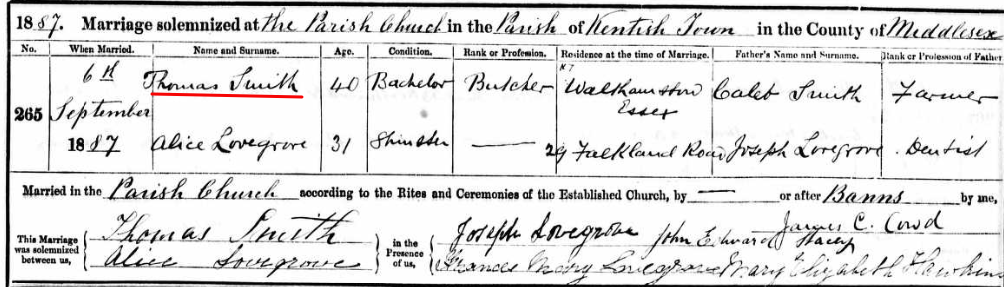 1887. Marriage solemnized at the Parish Church in the Parish of Kentish Town in the County of Middlesex
No. When Married. Name and Surname. Age. Condition. Rank or Profession. Residence at the time of Marriage. Father's Name and Surname. Rank or Profession of Father
6th Thomas Smith 40 Bachelor Butcher Walthamstow Caleb Smith Farmer
265 September Essex
1887 Alice Lovegrove 31 Spinster — 29 Falkland Road Joseph Lovegrove Dentist
Married in the Parish Church according to the Rites and Ceremonies of the Established Church, by — or after Banns by me,
This Marriage was solemnized between us,
Thomas Smith
Alice Lovegrove
in the Presence of us,
Joseph Lovegrove John Edward Stacey James C. Cowd
Frances Mary Lovegrove Mary Elizabeth Hawkins